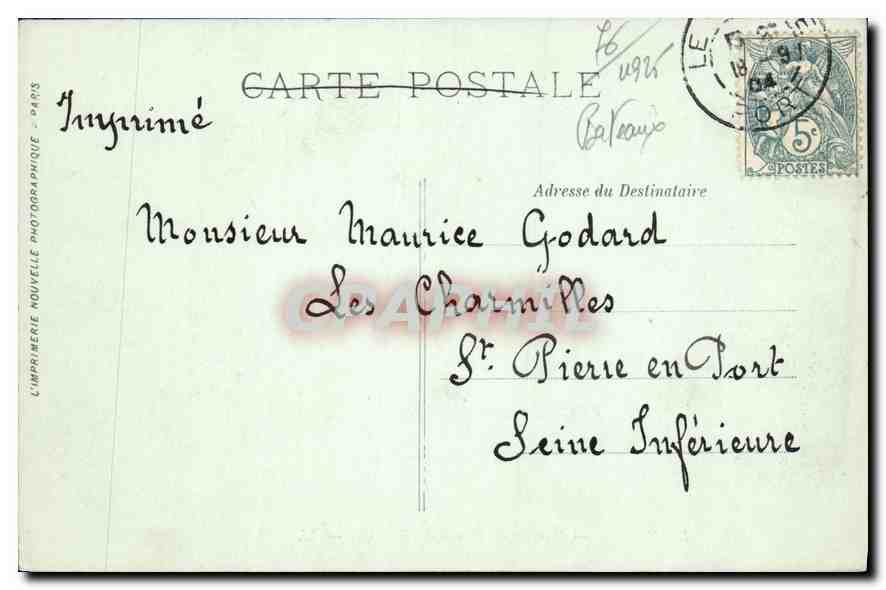 CARTE POSTALE
Imprimé
76
Bateaux
LE
18
04
5c
POSTES
Adresse du Destinataire
Monsieur Maurice Godard
Les Charmilles
St. Pierre en Port
Seine Inférieure
CPAPHIL
L'IMPRIMERIE NOUVELLE PHOTOGRAPHIQUE - PARIS